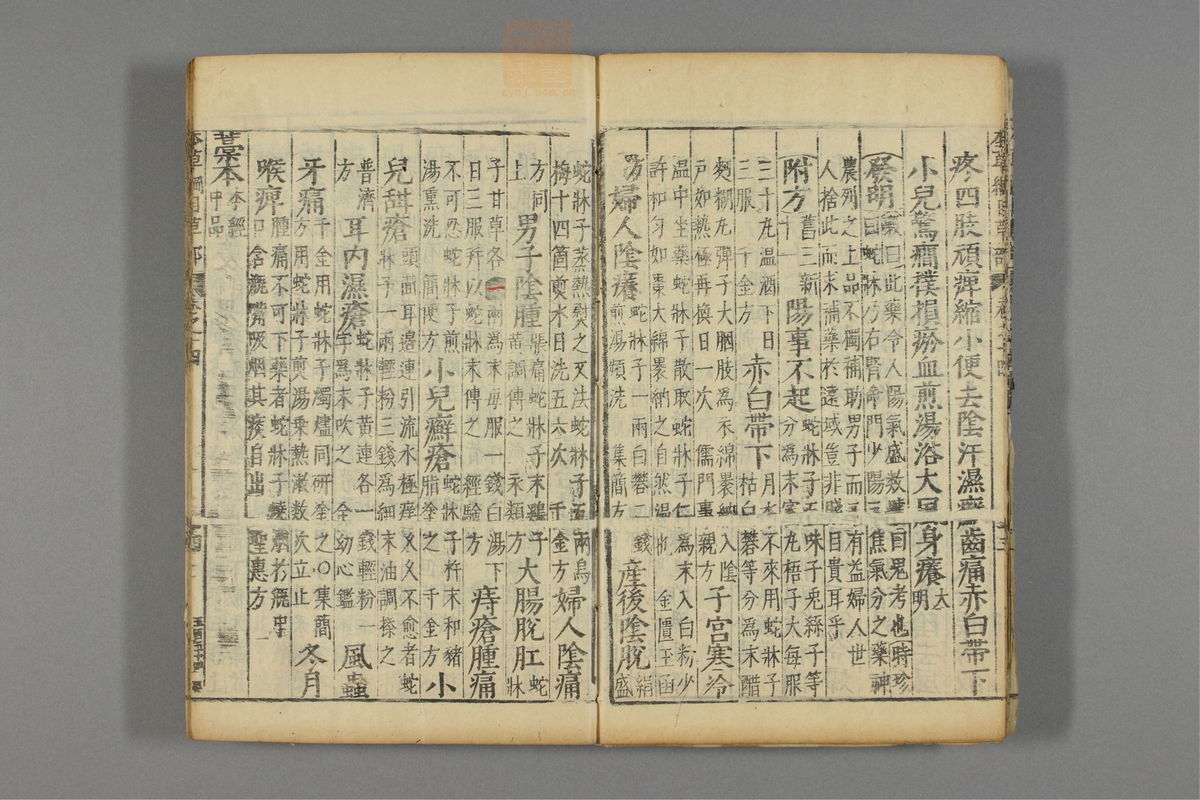 疼四肢頑痺縮小便去陰汗濕癬齒痛赤白帶下
小兒驚癇撲損瘀血煎湯浴大風身癢大明
發明斆曰此藥令人陽氣盛數號曰鬼考也時珍
曰蛇牀乃右腎命門少陽三焦氣分之藥神
農列之上品不獨補助男子而又有益婦人世
人捨此而求補藥於遠域豈非賤目貴耳乎
附方舊三新十陽事不起蛇牀子五味子兔絲子等
分為末蜜丸梧子大每服
三十丸溫酒下日三服千金方赤白帶下月水不來用蛇牀子
枯白礬等分為末醋
麪糊丸彈子大胭脂為衣綿裹納入陰
戶如熱極再換日一次儒門事親方子宮寒冷
溫中坐藥蛇牀子散取蛇牀子仁為末入白粉少
許和勻如棗大綿裹納之自然溫也金匱玉函
方婦人陰癢蛇牀子一兩白礬二錢
煎湯頻洗集簡方產後陰脫絹盛
蛇牀子蒸熱熨之又法蛇牀子五兩烏
梅十四箇煎水日洗五六次千金方婦人陰痛
方同
上男子陰腫脹痛蛇牀子末雞子
黃調傅之永類方大腸脫肛蛇牀
子甘草各一兩為末每服一錢白湯下
日三服并以蛇牀末傅之經驗方痔瘡腫痛
不可忍蛇牀子煎
湯熏洗簡便方小兒癬瘡蛇牀子杵末和豬
脂塗之千金方小
兒甜瘡頭面耳邊連引流水極痒久久不愈者蛇
牀子一兩輕粉三錢為細末油調搽之
普濟
方耳內濕瘡蛇牀子黃連各一錢輕粉一
字為末吹之全幼心鑑風蟲
牙痛千金用蛇牀子燭燼同研塗之○集簡
方用蛇牀子煎湯乘熱漱數次立止冬月
喉痺腫痛不可下藥者蛇牀子燒烟於瓶中
口含瓶嘴吸烟其痰自出聖惠方
藁本本經
中品